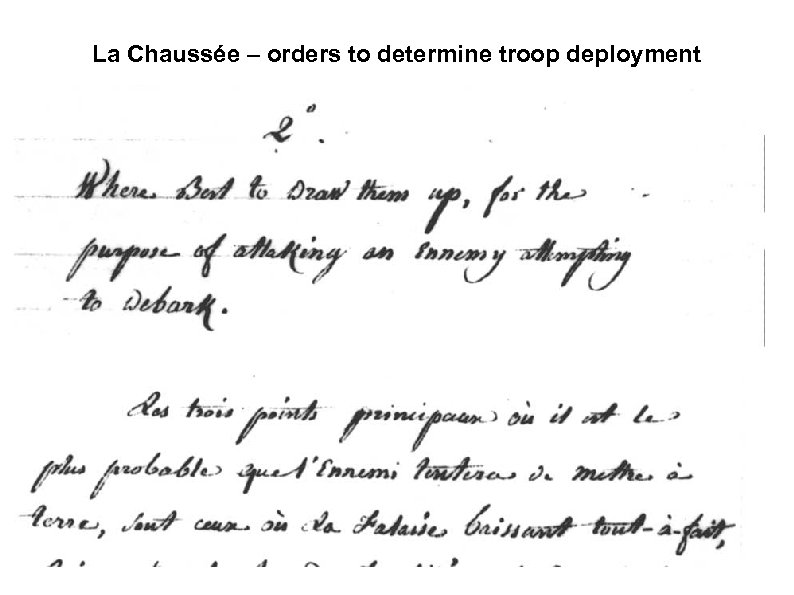 La Chaussée – orders to determine troop deployment
2°.
Where Best to Draw them up, for the
purpose of attaking an Ennemy attempting
to debark.
Les trois points principaux où il est le
plus probable que l'Ennemi tentera de mettre à
terre, sont ceux où la Falaise baissant tout-à-fait,